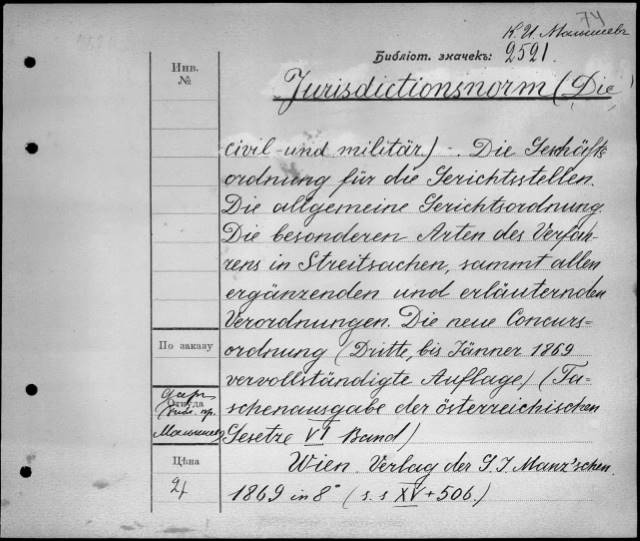 74
К. И. Малышевъ
Библіот. значекъ:
2521.
Инв.
№
Jurisdictionsnorm (Die
civil- und militär) -. Die Geschäfts
ordnung für die Gerichtsstellen.
Die allgemeine Gerichtsordnung.
Die besonderen Arten des Verfah-
rens in Streitsachen, sammt allen
ergänzenden und erläuternden
Verordnungen. Die neue Concurs-
По заказу
ordnung (Dritte, bis Jänner 1869
vervollständigte Auflage) (Ta-
Откуда
schenausgabe der österreichischen
Малышев
Gesetze VI Band)
Цѣна
Wien. Verlag der G. J. Manz'schen.
1869 in 8° (s. s XV + 506.)